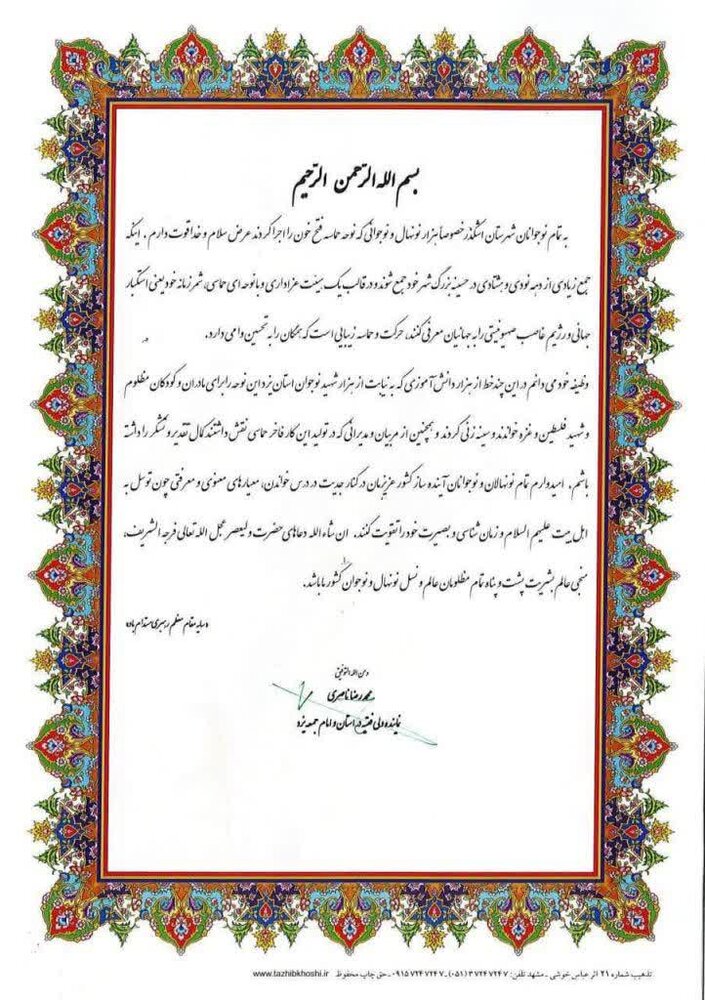 بسم الله الرحمن الرحیم
به تمام نوجوانان شهرستان اشکذر خصوصا هزار نونهال و نوجوانی که نوحه حماسه فتح خون را اجرا کردند عرض سلام و خداقوت دارم . اینکه
جمع زیادی از دهه نودی و هشتادی در حسینیه بزرگ شهر خود جمع شوند و در قالب یک هیئت عزاداری و با نوحه ای حماسی، شمر زمانه خود یعنی استکبار
جهانی و رژیم غاصب صهیونیستی را به جهانیان معرفی کنند، حرکت و حماسه زیبایی است که همگان را به تحسین وامی دارد.
وظیفه خود می دانم در این چند خط از هزار دانش آموزی که به نیابت از هزار شهید نوجوان استان یزد این نوحه را برای مادران و کودکان مظلوم
و شهید فلسطین و غزه خواندند و سینه زنی کردند و همچنین از مربیان و مدیرانی که در تولید این کار فاخر حماسی نقش داشتند کمال تقدیر و تشکر را داشته
باشم. امیدوارم تمام نونهالان و نوجوانان آینده ساز کشور عزیزمان در کنار جدیت در درس خواندن، معیارهای معنوی و معرفتی چون توسل به
اهل بیت علیهم السلام و زمان شناسی و بصیرت خود را تقویت کنند. ان شاء الله دعاهای حضرت ولیعصر عجل الله تعالی فرجه الشریف،
منجی عالم بشریت پشت و پناه تمام مظلومان عالم و نسل نونهال و نوجوان کشور ما باشد.
وسایه مقام معظم رهبری مستدام باد
و من الله التوفیق
محمدرضا ناصری
نماینده ولی فقیه در استان و امام جمعه یزد
تذهیب شماره ۲۱ اثر عباس خوشی ـ مشهد تلفن: ۳۷۲۴۷۲۴۷ (۰۵۱) ـ ۰۹۱۵۷۲۴۷۲۴۷ ـ حق چاپ محفوظ www.tazhibkhoshi.ir